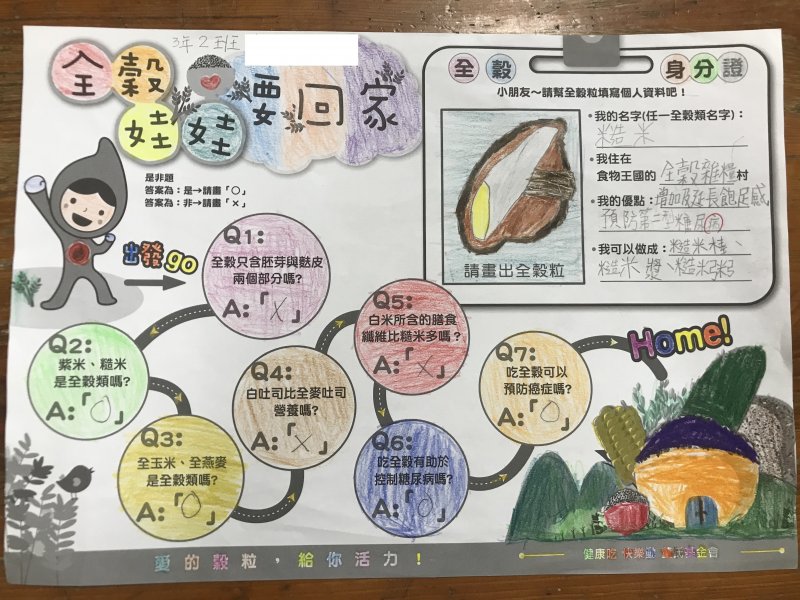 3年2班
全穀娃娃要回家
是非題
答案為:是→請畫「○」
答案為:非→請畫「×」
出發go
Q1:
全穀只含胚芽與麩皮
兩個部分嗎?
A:「×」
Q2:
紫米、糙米
是全穀類嗎?
A:「○」
Q3:
全玉米、全燕麥
是全穀類嗎?
A:「○」
Q4:
白吐司比全麥吐司
營養嗎?
A:「×」
Q5:
白米所含的膳食
纖維比糙米多嗎?
A:「×」
Q6:
吃全穀有助於
控制糖尿病嗎?
A:「○」
Q7:
吃全穀可以
預防癌症嗎?
A:「○」
Home!
全穀 身分證
小朋友～請幫全穀粒填寫個人資料吧!
•我的名字(任一全穀類名字):
糙米
•我住在
食物王國的 全穀雜糧村
•我的優點:增加及延長飽足感
預防第二型糖尿病
•我可以做成:糙米棒、
糙米漿、糙米粥
請畫出全穀粒
愛的穀粒,給你活力!
健康吃 快樂動 董氏基金會